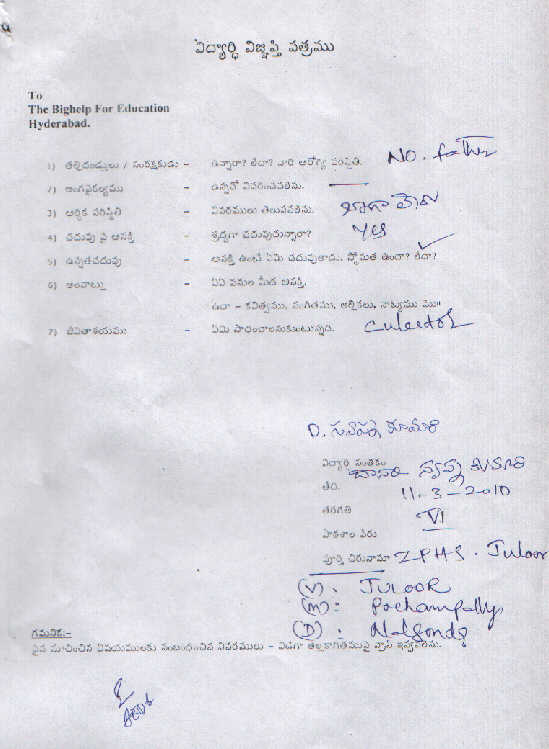 విద్యార్థి విజ్ఞప్తి పత్రము
To
The Bighelp For Education
Hyderabad.
1) తల్లిదండ్రులు / సంరక్షకుడు – ఉన్నారా? లేదా? వారి ఆరోగ్య పరిస్థితి. NO. father
2) అంగవైకల్యము – ఉన్నచో వివరించవలెను.
3) ఆర్థిక పరిస్థితి – వివరములు తెలుపవలెను. బాగా లేదు
4) చదువు పై ఆసక్తి – శ్రద్ధగా చదువుచున్నారా? Yes
5) ఉన్నతచదువు – ఆసక్తి ఉంటే ఏమి చదువుతాడు. స్థోమత ఉందా? లేదా?
6) అలవాట్లు – ఏఏ పనుల మీద ఆసక్తి.
ఉదా – కవిత్వము, సంగీతము, ఆటలు, నాట్యము మొ॥
7) జీవితాశయము – ఏమి సాధించాలనుకుంటున్నది. Culector
D. స్వప్న కుమారి
విద్యార్థి సంతకం
స్వప్న కుమారి
తేది. 11-3-2010
తరగతి VI
పాఠశాల పేరు
పూర్తి చిరునామా ZPHS. Juloor
(V). JULOOR
(M): Pochampally
(D): Nalgonda
గమనిక:-
పైన సూచించిన విషయములకు సంబంధించిన వివరములు – విడిగా తెల్లకాగితముపై వ్రాసి ఇవ్వవలెను.